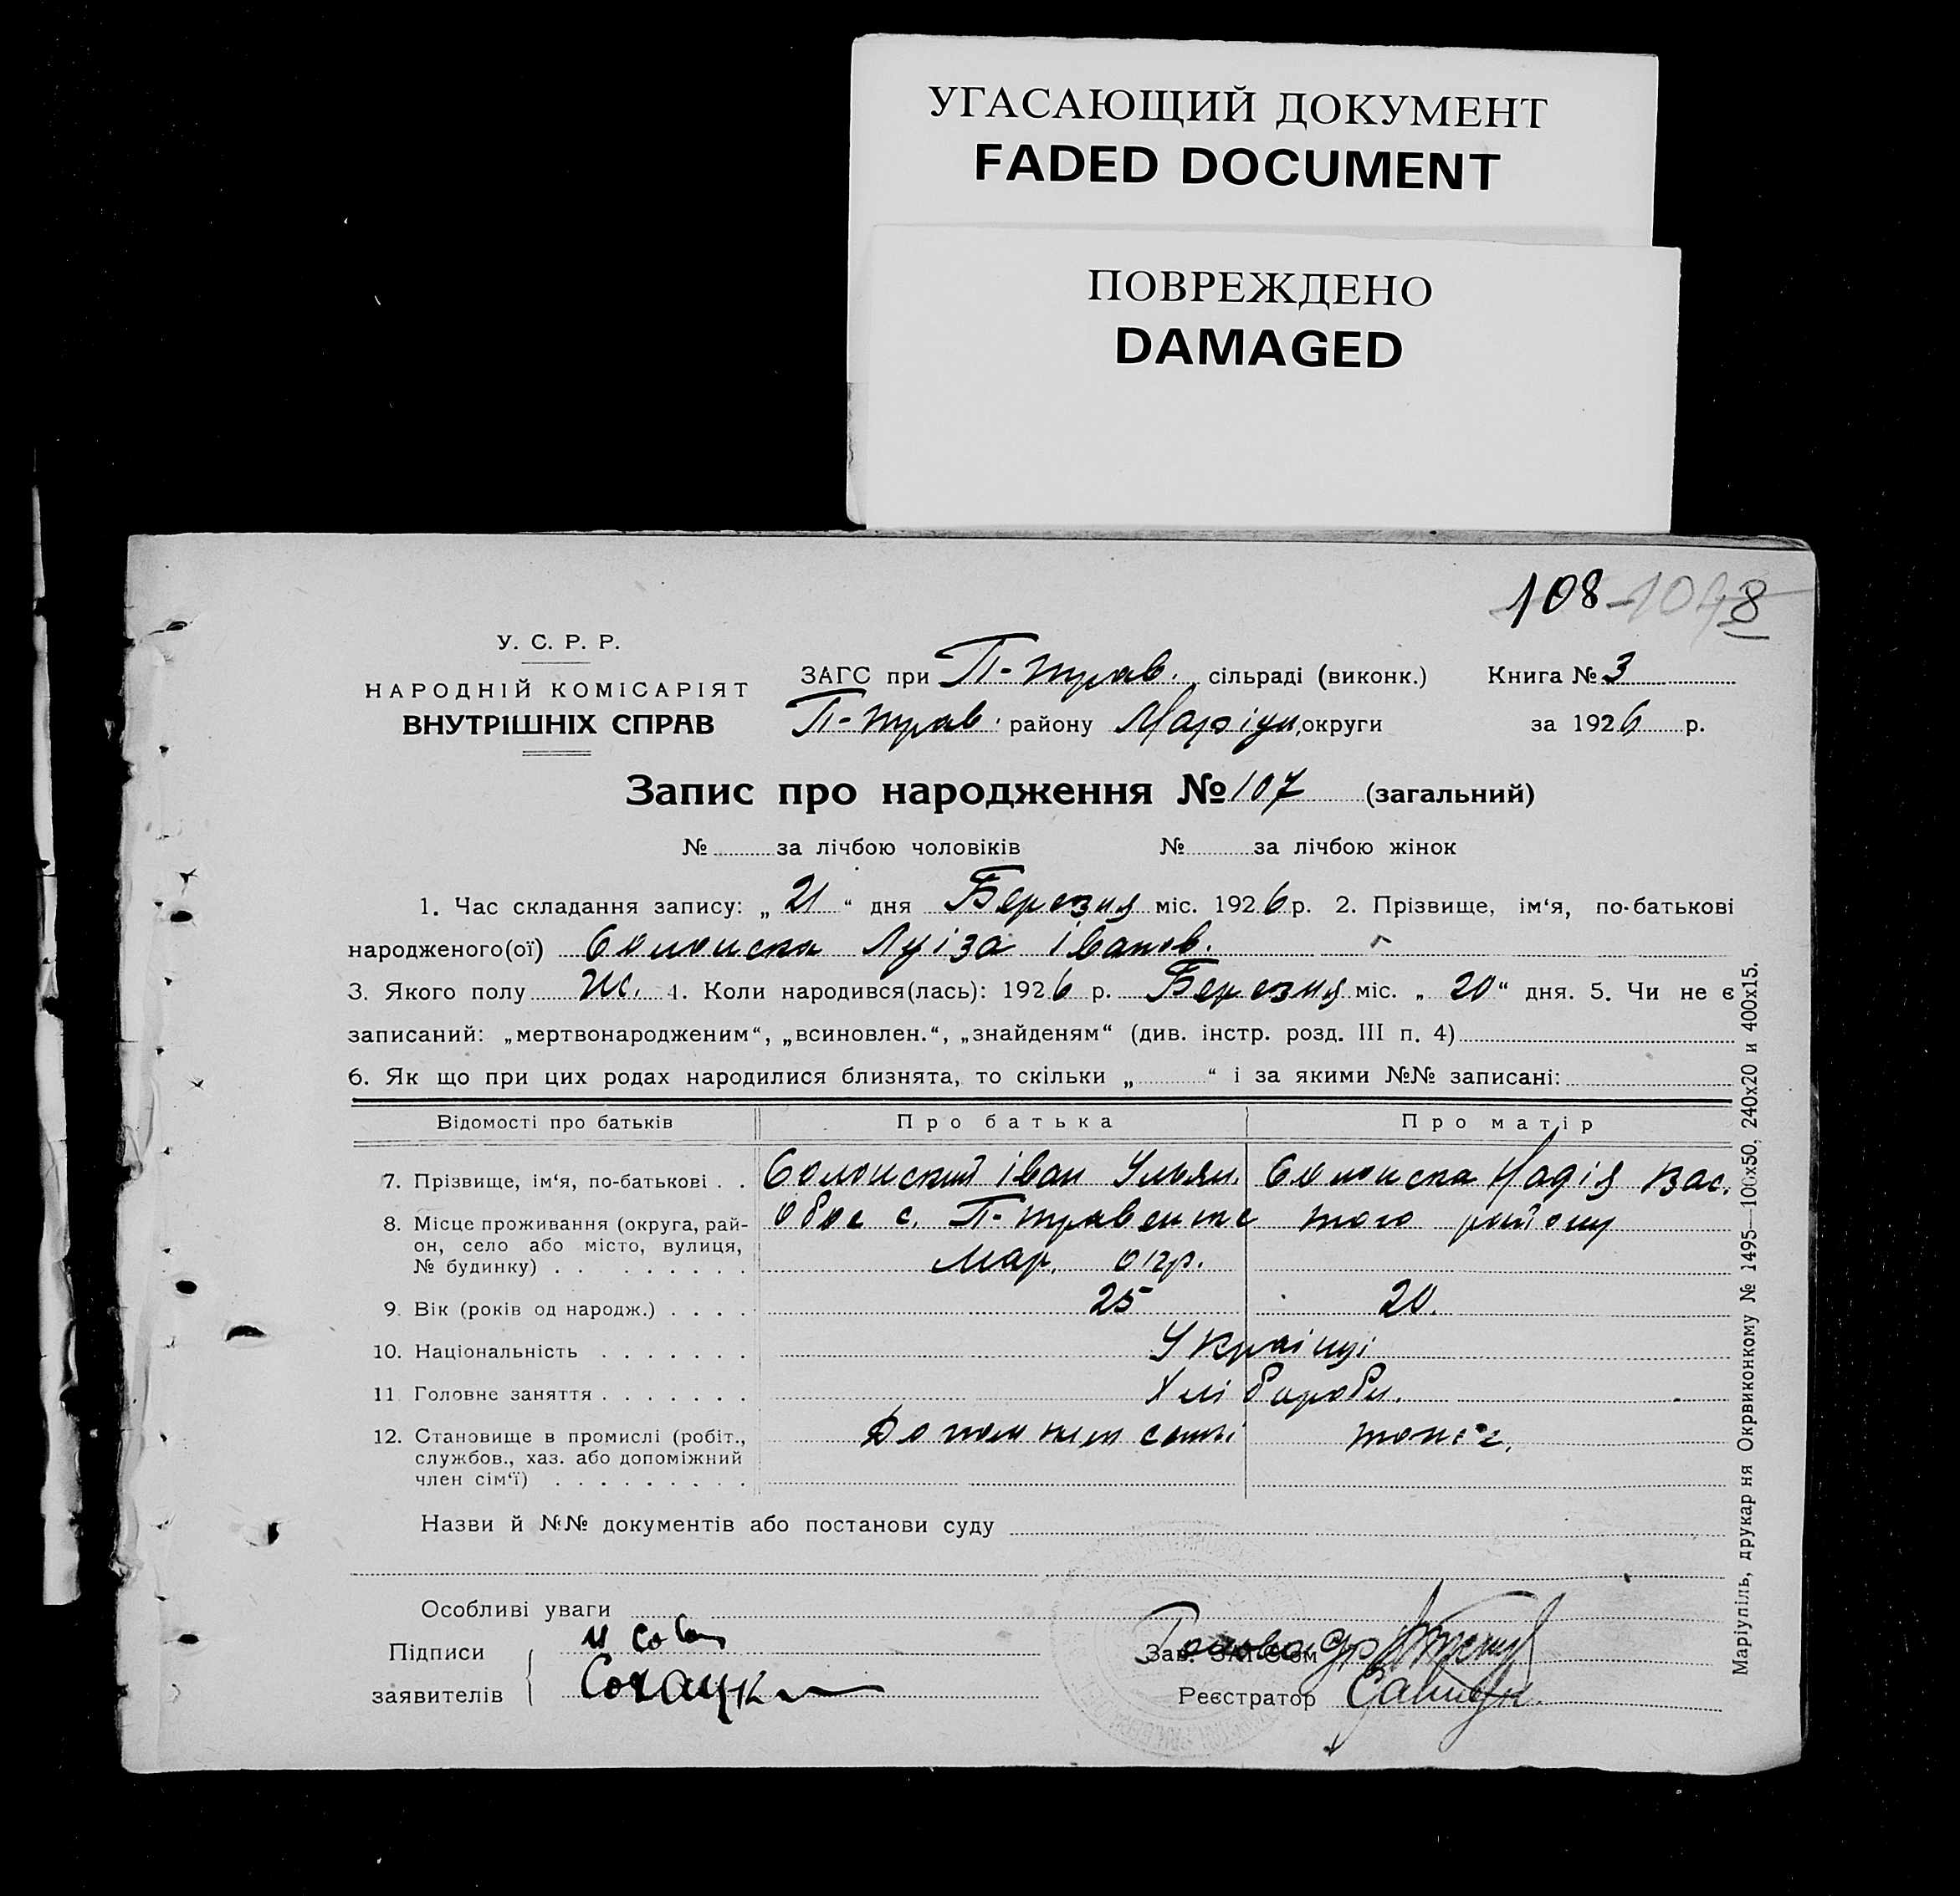 УГАСАЮЩИЙ ДОКУМЕНТ
FADED DOCUMENT
ПОВРЕЖДЕНО
DAMAGED
108
У. С. Р. Р.
НАРОДНІЙ КОМІСАРІЯТ
ВНУТРІШНІХ СПРАВ
ЗАГС при П-трав. сільраді (виконк.) Книга № 3
П-трав. району Маріуп. округи за 1926 р.
Запис про народження № 107 (загальний)
№ за лічбою чоловіків № за лічбою жінок
1. Час складання запису: „ 21 “ дня Березня міс. 1926 р. 2. Прізвище, ім‘я, по-батькові
народженого(ої) Луіза Іванов.
3. Якого полу Ж. 4. Коли народився(лась): 1926 р. Березня міс. „ 20 “ дня. 5. Чи не є
записаний: „мертвонародженим“, „всиновлен.“, „знайденям“ (див. інстр. розд. III п. 4)
6. Як що при цих родах народилися близнята, то скільки „ “ і за якими №№ записані:
Відомості про батьків Про батька Про матір
7. Прізвище, ім‘я, по-батькові . . Іван Ульян. Надія Вас.
8. Місце проживання (округа, рай-
он, село або місто, вулиця,
№ будинку) . . . . . . . . .
Обоє с. П-травенне того району
Мар. окр.
9. Вік (років од народж.) . . . . 25 20.
10. Національність . . . . . . . Українці
11 Головне заняття . . . . . . . Хліборобы.
12. Становище в промислі (робіт.,
службов., хаз. або допоміжний
член сім‘ї) . . . . . . . . .
Назви й №№ документів або постанови суду
Особливі уваги
Підписи
заявителів
Зав. ЗАГС‘ом
Реєстратор
Маріупіль, друкарня Окрвиконкому № 1495—100х50, 240х20 и 400х15.